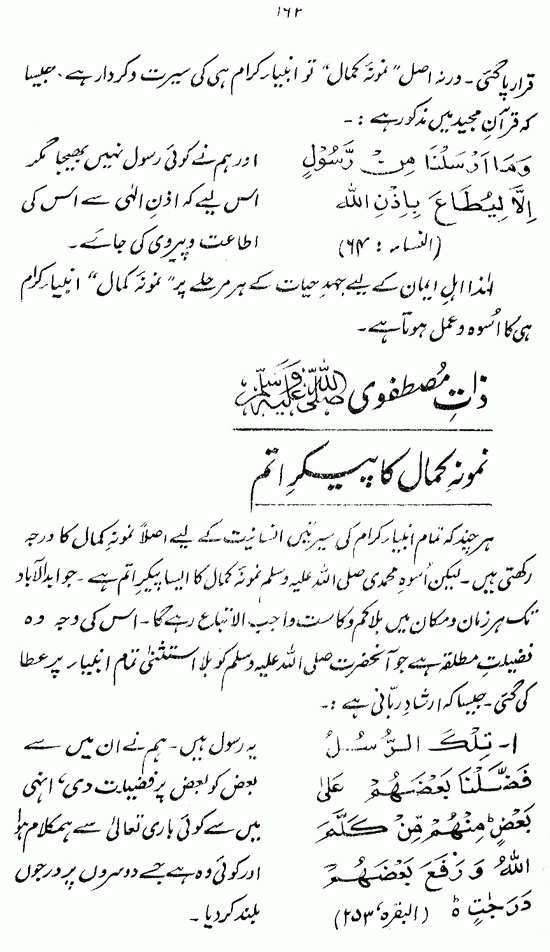 ۱۶۲
قرار پا گئی۔ ورنہ اصل "نمونۂ کمال" تو انبیاء کرام ہی کی سیرت و کردار ہے۔ جیسا
کہ قرآن مجید میں مذکور ہے :۔
وَمَا اَرْسَلْنَا مِنْ رَّسُوْلٍ اور ہم نے کوئی رسول نہیں بھیجا مگر
اِلَّا لِیُطَاعَ بِاِذْنِ اللّٰہِ اس لیے کہ اذنِ الٰہی سے اس کی
(النساء : ۶۴) اطاعت و پیروی کی جائے۔
لہٰذا اہلِ ایمان کے لیے جہدِ حیات کے ہر مرحلے پر "نمونۂ کمال" انبیاء کرام
ہی کا اُسوہ و عمل ہوتا ہے۔
ذاتِ مُصطفوی صلی اللہ علیہ وسلم
نمونۂ کمال کا پیکرِ اتم
ہر چند کہ تمام انبیاء کرام کی سیرتیں انسانیت کے لیے اصلاً نمونۂ کمال کا درجہ
رکھتی ہیں۔ لیکن اُسوہ محمدی صلی اللہ علیہ وسلم نمونۂ کمال کا ایسا پیکرِ اتم ہے۔ جو ابدالآباد
تک ہر زمان و مکان میں بلاکم و کاست واجب الاتباع رہے گا۔ اس کی وجہ وہ
فضیلتِ مطلقہ ہے جو آنحضرت صلی اللہ علیہ وسلم کو بلا استثنیٰ تمام انبیاء پر عطا
کی گئی۔ جیسا کہ ارشادِ ربّانی ہے :۔
۱۔ تِلْکَ الرُّسُلُ یہ رسول ہیں۔ ہم نے ان میں سے
فَضَّلْنَا بَعْضَهُمْ عَلٰی بعض کو بعض پر فضیلت دی، انہی
بَعْضٍ مِنْهُمْ مَّنْ کَلَّمَ میں سے کوئی باری تعالیٰ سے ہمکلام ہوا
اللّٰہُ وَرَفَعَ بَعْضَهُمْ اور کوئی وہ ہے جسے دوسروں پر درجوں
دَرَجٰتٍ ط (البقرہ، ۲۵۳) بلند کر دیا۔